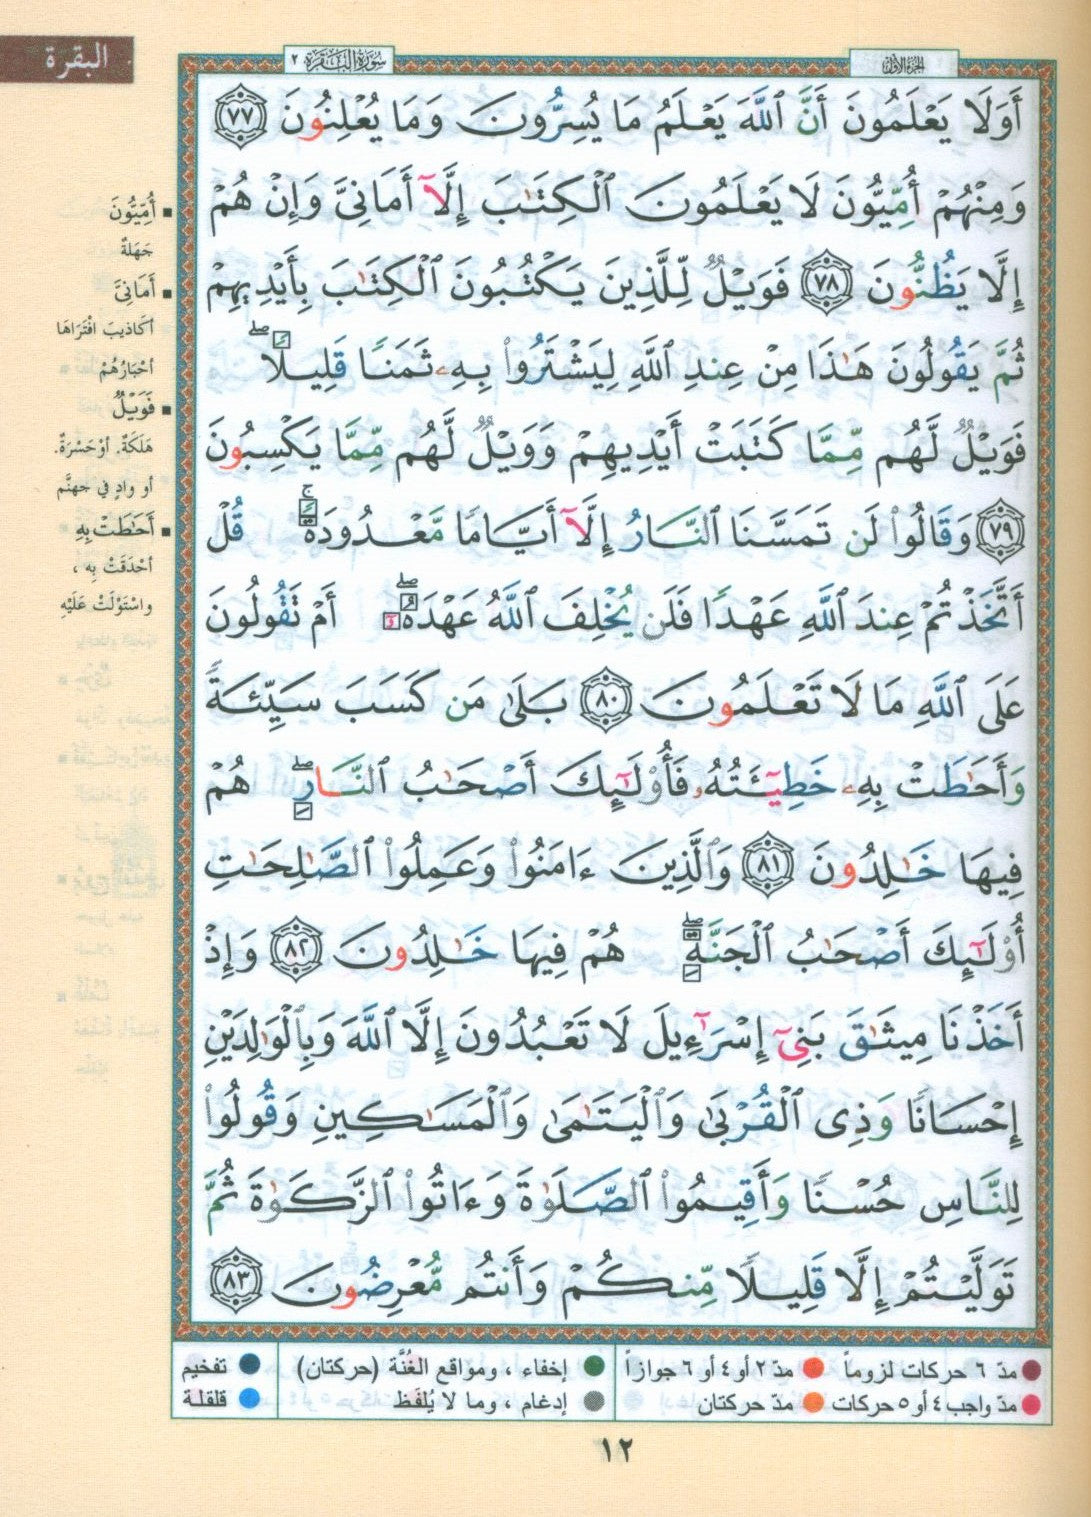 البقرة
سورة البقرة ٢
الجزء الأول
أَوَلَا يَعْلَمُونَ أَنَّ ٱللَّهَ يَعْلَمُ مَا يُسِرُّونَ وَمَا يُعْلِنُونَ ٧٧
وَمِنْهُمْ أُمِّيُّونَ لَا يَعْلَمُونَ ٱلْكِتَٰبَ إِلَّآ أَمَانِىَّ وَإِنْ هُمْ
إِلَّا يَظُنُّونَ ٧٨ فَوَيْلٌ لِّلَّذِينَ يَكْتُبُونَ ٱلْكِتَٰبَ بِأَيْدِيهِمْ
ثُمَّ يَقُولُونَ هَٰذَا مِنْ عِندِ ٱللَّهِ لِيَشْتَرُوا۟ بِهِۦ ثَمَنًا قَلِيلًا ۖ
فَوَيْلٌ لَّهُم مِّمَّا كَتَبَتْ أَيْدِيهِمْ وَوَيْلٌ لَّهُم مِّمَّا يَكْسِبُونَ
٧٩ وَقَالُوا۟ لَن تَمَسَّنَا ٱلنَّارُ إِلَّآ أَيَّامًا مَّعْدُودَةً ۚ قُلْ
أَتَّخَذْتُمْ عِندَ ٱللَّهِ عَهْدًا فَلَن يُخْلِفَ ٱللَّهُ عَهْدَهُۥٓ ۖ أَمْ تَقُولُونَ
عَلَى ٱللَّهِ مَا لَا تَعْلَمُونَ ٨٠ بَلَىٰ مَن كَسَبَ سَيِّئَةً
وَأَحَٰطَتْ بِهِۦ خَطِيٓـَٔتُهُۥ فَأُو۟لَٰٓئِكَ أَصْحَٰبُ ٱلنَّارِ ۖ هُمْ
فِيهَا خَٰلِدُونَ ٨١ وَٱلَّذِينَ ءَامَنُوا۟ وَعَمِلُوا۟ ٱلصَّٰلِحَٰتِ
أُو۟لَٰٓئِكَ أَصْحَٰبُ ٱلْجَنَّةِ ۖ هُمْ فِيهَا خَٰلِدُونَ ٨٢ وَإِذْ
أَخَذْنَا مِيثَٰقَ بَنِىٓ إِسْرَٰٓءِيلَ لَا تَعْبُدُونَ إِلَّا ٱللَّهَ وَبِٱلْوَٰلِدَيْنِ
إِحْسَانًا وَذِى ٱلْقُرْبَىٰ وَٱلْيَتَٰمَىٰ وَٱلْمَسَٰكِينِ وَقُولُوا۟
لِلنَّاسِ حُسْنًا وَأَقِيمُوا۟ ٱلصَّلَوٰةَ وَءَاتُوا۟ ٱلزَّكَوٰةَ ثُمَّ
تَوَلَّيْتُمْ إِلَّا قَلِيلًا مِّنكُمْ وَأَنتُم مُّعْرِضُونَ ٨٣
أُمِّيُّونَ
جَهَلةٌ
أَمَانِىَّ
أكَاذيبَ افْتَرَاهَا
أحْبَارُهُمْ
فَوَيْلٌ
هَلَكَةٌ. أوْحَسْرَةٌ.
أو وادٍ في جهنَّم
أَحَٰطَتْ بِهِ
أحْدَقَتْ بِه ،
واسْتَوْلَتْ عَلَيْهِ
مدّ ٦ حركات لزوماً مدّ ٢ أو ٤ أو ٦ جوازاً إخفاء ، ومواقع الغُنَّة (حركتان) تفخيم
مدّ واجب ٤ أو ٥ حركات مدّ حركتان إدغام ، وما لا يُلفَظ قلقلة
١٢